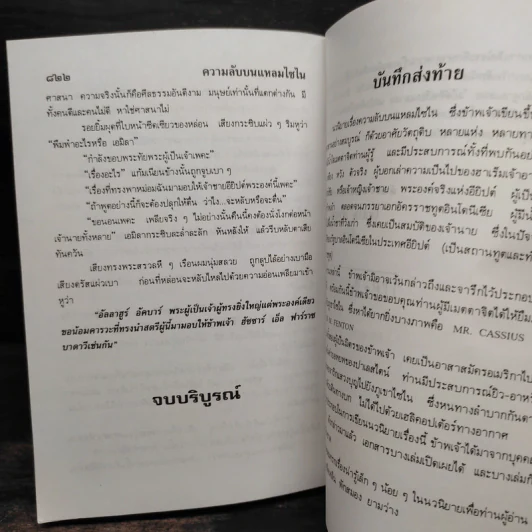 ๘๒๒
ความลับบนแหลมไซไน
ศาสนา ความจริงนั้นก็คือศีลธรรมอันดีงาม มนุษย์เท่านั้นที่แตกต่างกัน มี
ทั้งคนดีและคนไม่ดี หาใช่ศาสนาไม่
รอยยิ้มผุดที่ใบหน้าซีดเซียวของหล่อน เสียงกระซิบแผ่ว ๆ ริมหูว่า
"พึมพำอะไรหรือ เอมิลา"
"กำลังขอบพระทัยพระผู้เป็นเจ้าเพคะ"
"เรื่องอะไร" แก้มเนียนข้างนั้นถูกจูบเบา ๆ
"เรื่องที่ทรงพาหม่อมฉันมามอบให้เจ้าชายอียิปต์พระองค์นี้เพคะ"
"ถ้าพูดอย่างนี้ก็จะต้องปลุกให้ตื่น ว่าไง...จะหลับหรือจะตื่น"
"ขอนอนเพคะ เพลียจริง ๆ ไม่อย่างนั้นคืนนี้คงต้องนั่งโงกต่อหน้า
เจ้านายทั้งหลาย" เอมิลากระซิบละล่ำละลัก หันหลังให้ แล้วรีบหลับตาเสีย
ทันควัน
เสียงทรงพระสรวลหึ ๆ เรือนผมนุ่มสลวย ถูกลูบไล้อย่างเบามือ
เสียงตรัสแผ่วเบา ก่อนที่หล่อนจะหลับใหลไปด้วยความอ่อนเพลียมาเข้า
หูว่า
"อัลลาฮูร์ อัคบาร์ พระผู้เป็นเจ้าผู้ทรงยิ่งใหญ่แต่พระองค์เดียว
ขอน้อมคารวะที่ทรงนำสตรีผู้นี้มามอบให้ข้าพเจ้า ฮัซซาร์ เอ็ล ฟาร์ราช
บาดาวีเช่นกัน"
จบบริบูรณ์
บันทึกส่งท้าย
นวนิยายเรื่องความลับบนแหลมไซไน ซึ่งข้าพเจ้าเขียนขึ้น
อย่างสมบูรณ์ ก็ด้วยอาศัยวัตถุดิบ หลายแห่ง หลายทาง
เมตตาจิตท่านผู้รู้ และมีประสบการณ์ทั้งที่พบกันอย่าง
หวัง ตัวจริง ผู้บอกเล่าความเป็นไปของฮาเร็มเจ้าอา
หรือเจ้าหญิงเจ้าชาย พระองค์จริงแห่งอียิปต์ ผู้เป็น
ตลอดจนภรรยาเอกอัครราชทูตอินโดนีเซีย ผู้มีน้ำ
ซึ่งเคยเป็นสมบัติของเจ้านาย ซึ่งในปัจ
รัฐบาลอินโดนีเซียในประเทศอียิปต์ (เป็นสถานทูตและทำ
ข้าพเจ้ามิอาจเว้นกล่าวถึงและจารึกไว้ประกอบ
ข้าพเจ้าขอขอบคุณท่านผู้มีเมตตาจิตได้ให้ยืม
ซึ่งหาได้ยากยิ่งบางภาคคือ MR. CASSIUS
FENTON
ผู้เป็นมิตรของข้าพเจ้า เคยเป็นอาสาสมัครอเมริกาไป
เทพของปาเลสไตน์ ท่านมีประสบการณ์ยิว-อาหรับ
แสวงบุญไปยังภูเขาไซไน ซึ่งหนทางลำบากกันดาร
ไม่ได้ไปด้วยเฮลิคอปเตอร์ทางอากาศ
การเขียนนวนิยายเรื่องนี้ ข้าพเจ้าได้มาจากบุคคล
มาแล้ว เอกสารบางเล่มเปิดเผยได้ และบางเล่มก็
เรื่องน่ารู้เล็ก ๆ น้อย ๆ ในนวนิยายเพื่อท่านผู้อ่าน
ตักสมอง ยามว่าง